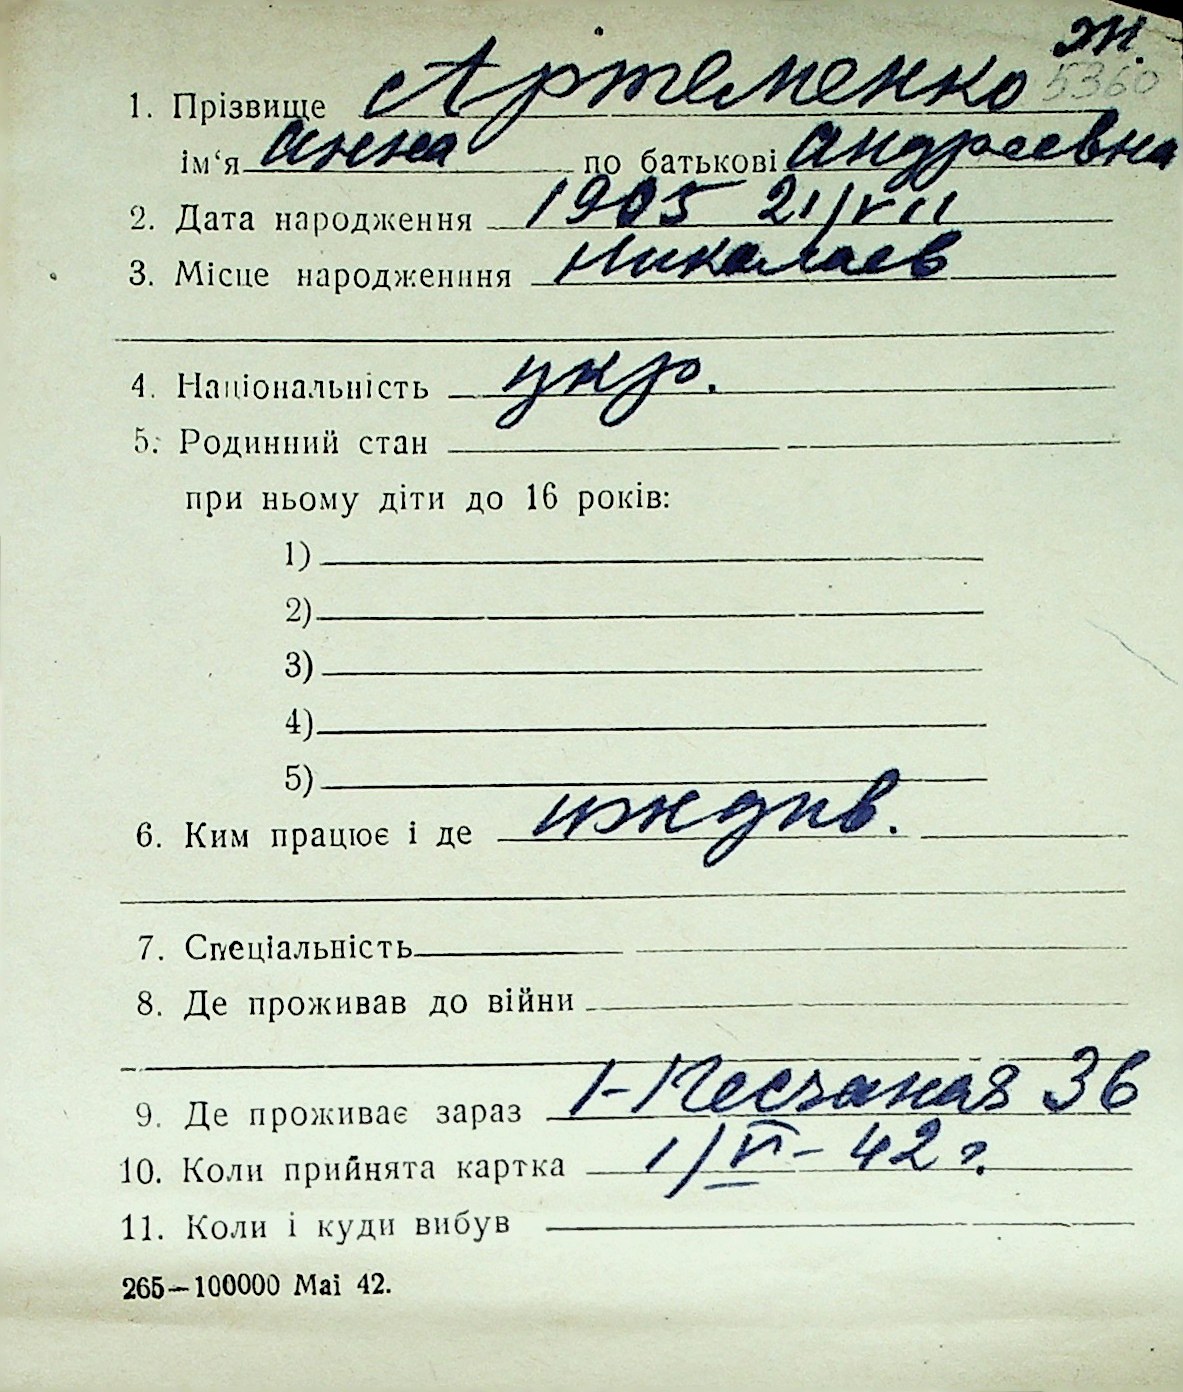 ж.
1. Прізвище Артеменко 5360
ім‘я Анна по батькові Андреевна
2. Дата народження 1905 21/VII
3. Місце народженння Николаев
4. Національність укр.
5. Родинний стан
при ньому діти до 16 років:
1)
2)
3)
4)
5)
6. Ким працює і де иждив.
7. Спеціальність
8. Де проживав до війни
9. Де проживає зараз 1-Песчаная 36
10. Коли прийнята картка 1/VI-42 г.
11. Коли і куди вибув
265—100000 Mai 42.